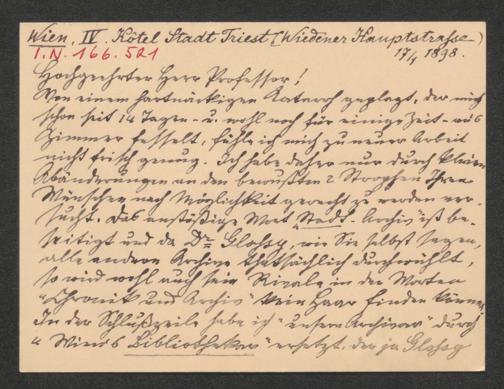 Wien, IV. Hôtel Stadt Triest (Wiedener Hauptstrasse)
I.N. 166.521 17/4 1898.
Hochgeehrter Herr Professor!
Von einem hartnäckigen Katarrh geplagt, der mich
schon seit 14 Tagen - u. wohl noch für einige Zeit - ans
Zimmer fesselt, fühle ich mich zu neuer Arbeit
nicht frisch genug. Ich habe daher nur durch kleine
Abänderungen an den bewußten 2 Strophen Ihren
Wünschen nach Möglichkeit gerecht zu werden ver-
sucht. Das anstößige Wort "Stadt" Archiv ist be-
seitigt und da Dr. Glossy, wie Sie selbst sagen,
alle andern Archive thatsächlich durchwühlt,
so wird wohl auch sein Rivale in den Worten
"Chronik und Archiv" kein Haar finden können.
In der Schlußzeile habe ich "unsern Archivar" durch
"Wien's Bibliothekar" ersetzt, der ja Glossy